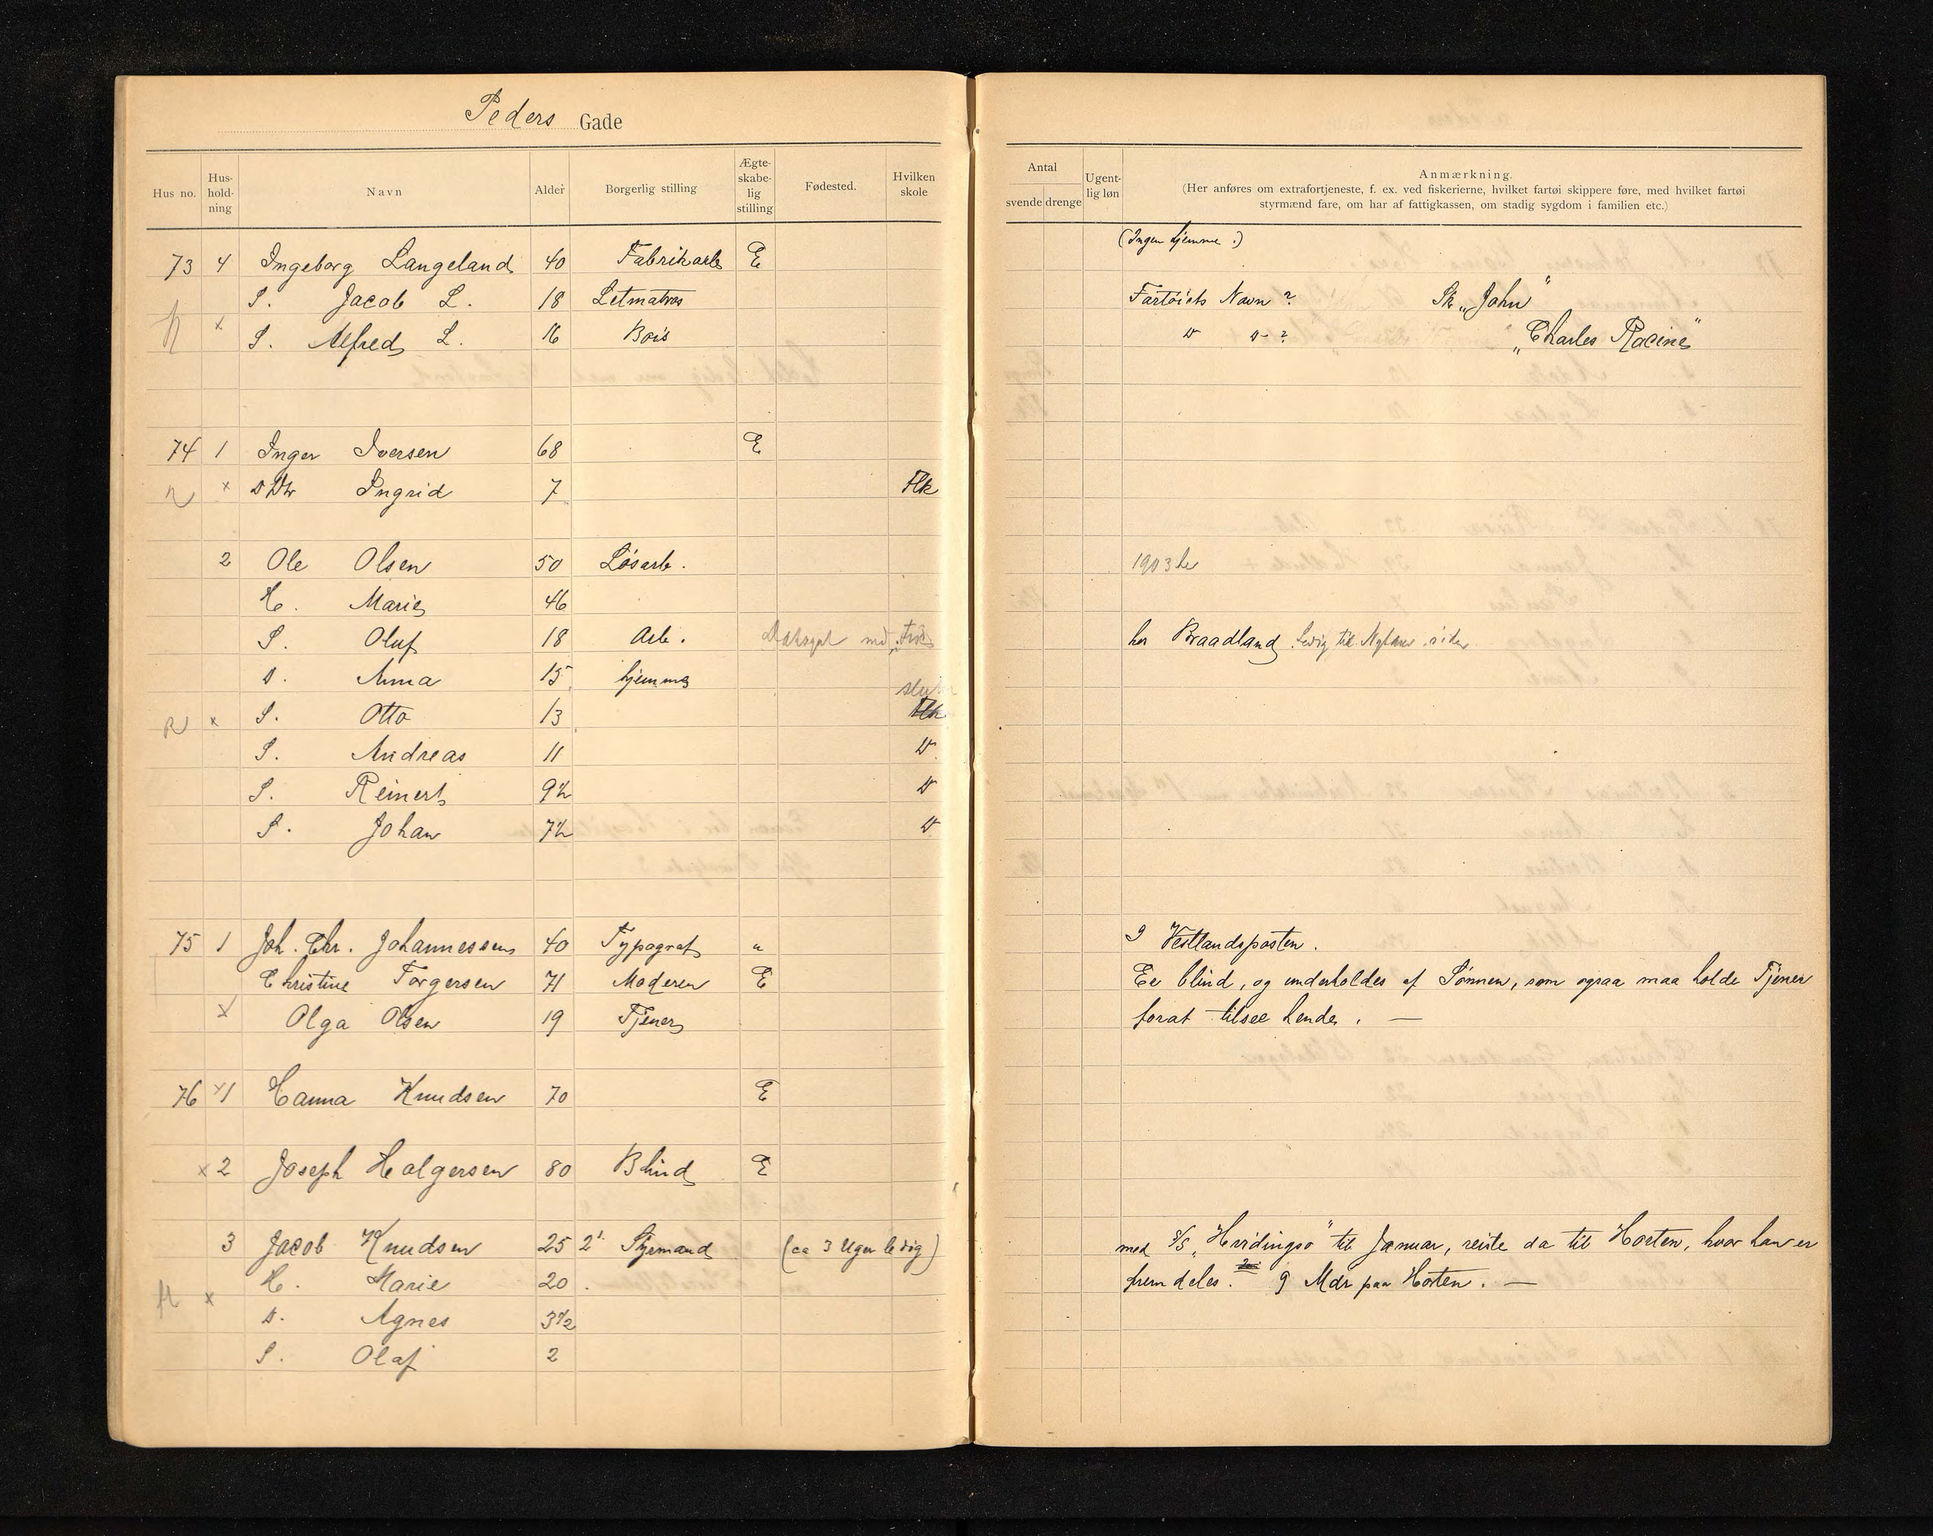 Peders Gade
Hus no. Hus-hold-ning Navn Alder Borgerlig stilling Ægte-skabe-lig stilling Fødested. Hvilken skole
Antal svende drenge Ugent-lig løn Anmærkning.
(Her anføres om extrafortjeneste, f. ex. ved fiskerierne, hvilket fartøi skippere føre, med hvilket fartøi
styrmænd fare, om har af fattigkassen, om stadig sygdom i familien etc.)
(Ingen hjemme.)
73 4 Ingeborg Langeland 40 Fabrikarb E
S. Jacob L. 18 Letmatros Fartøiets Navn? Sk „John"
x S. Alfred L. 16 Bois D D-? „Charles Racine"
74 1 Inger Iversen 68 E
x DDtr Ingrid 7 Flk
2 Ole Olsen 50 Løsarb. 1903 he
H. Marie 46
S. Oluf 18 Arb. hos Braadland Ledig til Nytaar
D. Anna 15 hjemme
x S. Otto 13 Flk
S. Andreas 11 D
S. Reinert 9½ D
S. Johan 7½ D
75 1 Joh. Chr. Johannessen 40 Typograf „ I Vestlandsposten.
Christine Torgersen 71 Moderen E Er blind, og underholdes af Sønnen, som ogsaa maa holde Tjener
x Olga Olsen 19 Tjener forat tilsee hende. —
76 x1 Hanna Knudsen 70 E
x 2 Joseph Holgersen 80 Blind E
3 Jacob Knudsen 25 2' Styrmand (ca 3 Uger ledig) med S/S „Hvidingsø" til Januar, reiste da til Horten, hvor han er
H. Marie 20. fremdeles. 9 Mdr paa Horten. —
x D. Agnes 3½
S. Olaf 2